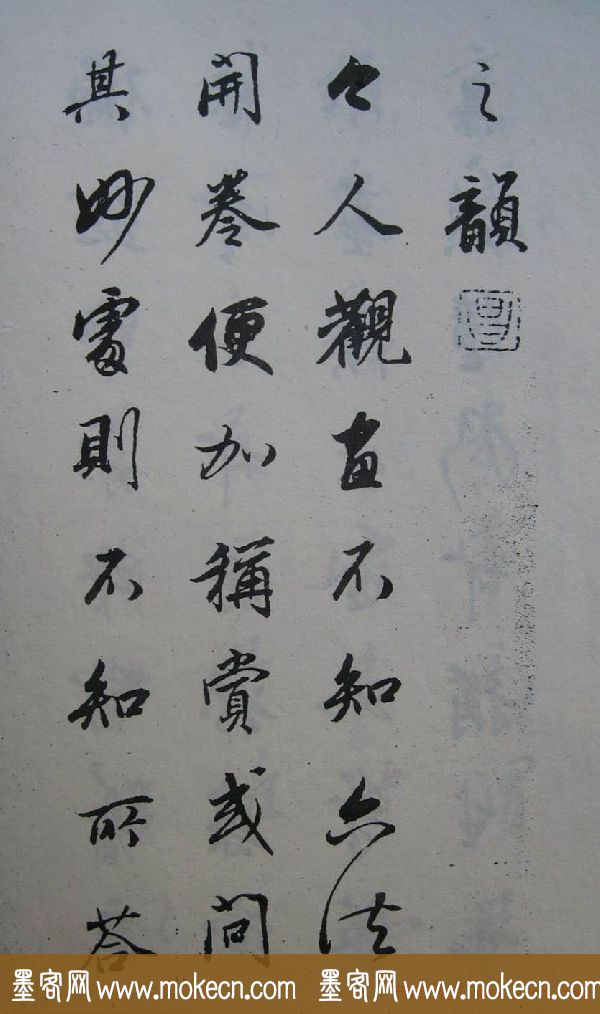 之韻
今人觀畫不知六法
開卷便加稱賞或問
其妙處則不知所答
墨客网 www.mokecn.com 墨客网 www.mokecn.com